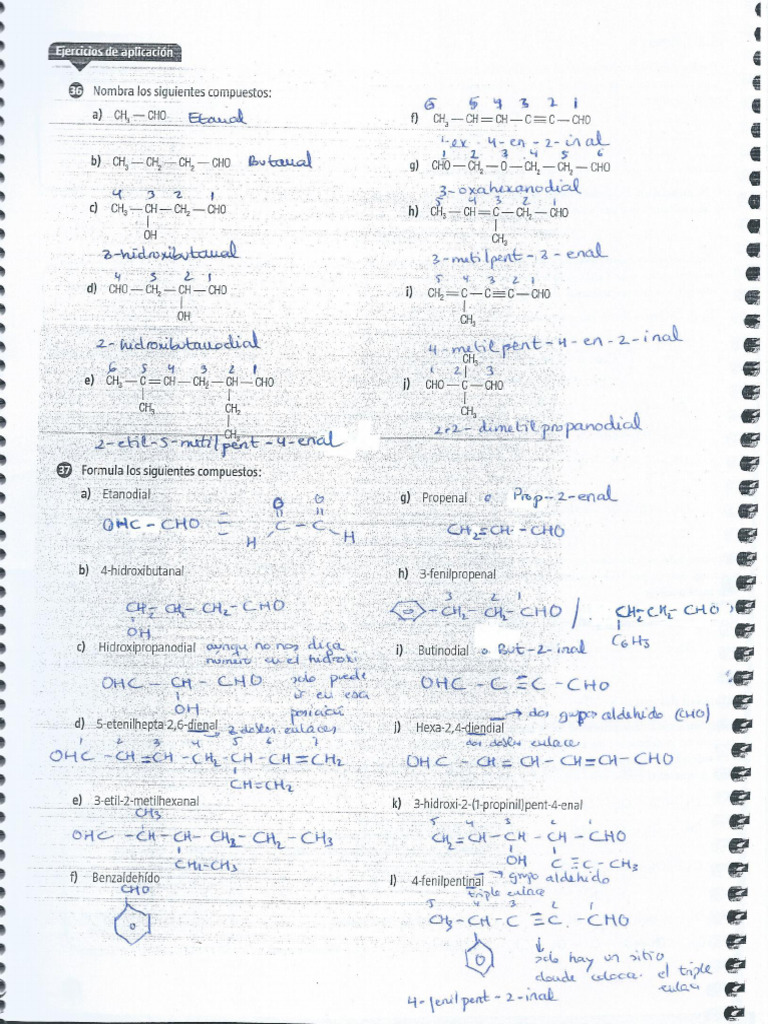 Ejercicios de aplicación
36 Nombra los siguientes compuestos:
a) CH₃ — CHO Etanal
b) CH₃ — CH₂ — CH₂ — CHO Butanal
4 3 2 1
c) CH₃ — CH — CH₂ — CHO
OH
3-hidroxibutanal
4 3 2 1
d) CHO — CH₂ — CH — CHO
OH
2-hidroxibutanodial
6 5 4 3 2 1
e) CH₃ — C = CH — CH₂ — CH — CHO
CH₃ CH₂
CH₃
2-etil-5-metilpent-4-enal
6 5 4 3 2 1
f) CH₃ — CH = CH — C ≡ C — CHO
Hex-4-en-2-inal
1 2 3 4 5 6
g) CHO — CH₂ — O — CH₂ — CH₂ — CHO
3-oxahexanodial
5 4 3 2 1
h) CH₃ — CH = C — CH₂ — CHO
CH₃
3-metilpent-3-enal
5 4 3 2 1
i) CH₂ = C — C ≡ C — CHO
CH₃
4-metilpent-4-en-2-inal
CH₃
1 2 3
j) CHO — C — CHO
CH₃
2,2-dimetilpropanodial
37 Formula los siguientes compuestos:
a) Etanodial
OHC - CHO = O O
C - C
H H
b) 4-hidroxibutanal
CH₂ CH₂ - CH₂ - CHO
OH
c) Hidroxipropanodial aunque no nos diga
numero en el hidroxi
OHC - CH - CHO solo puede
OH ir en esa
posición
d) 5-etenilhepta-2,6-dienal → 2 dobles enlaces
1 2 3 4 5 6 7
OHC - CH = CH - CH₂ - CH - CH = CH₂
CH = CH₂
e) 3-etil-2-metilhexanal
CH3
OHC - CH - CH - CH₂ - CH₂ - CH3
CH₂-CH3
f) Benzaldehído
CHO
g) Propenal o Prop-2-enal
CH₂=CH - CHO
h) 3-fenilpropenal
3 2 1
- CH₂ - CH₂ - CHO / CH₂-CH₂-CHO
C6H5
i) Butinodial o But-2-inal
OHC - C ≡ C - CHO
→ dos grupos aldehido (CHO)
j) Hexa-2,4-diendial
dos dobles enlace
OHC - CH = CH - CH = CH - CHO
k) 3-hidroxi-2-(1-propinil)pent-4-enal
5 4 3 2 1
CH₂ = CH - CH - CH - CHO
OH C ≡ C - CH3
l) 4-fenilpentinal → grupo aldehido
triple enlace
5 4 3 2 1
CH3 - CH - C ≡ C - CHO
solo hay un sitio
donde colocar el triple
enlace
4-fenilpent-2-inal